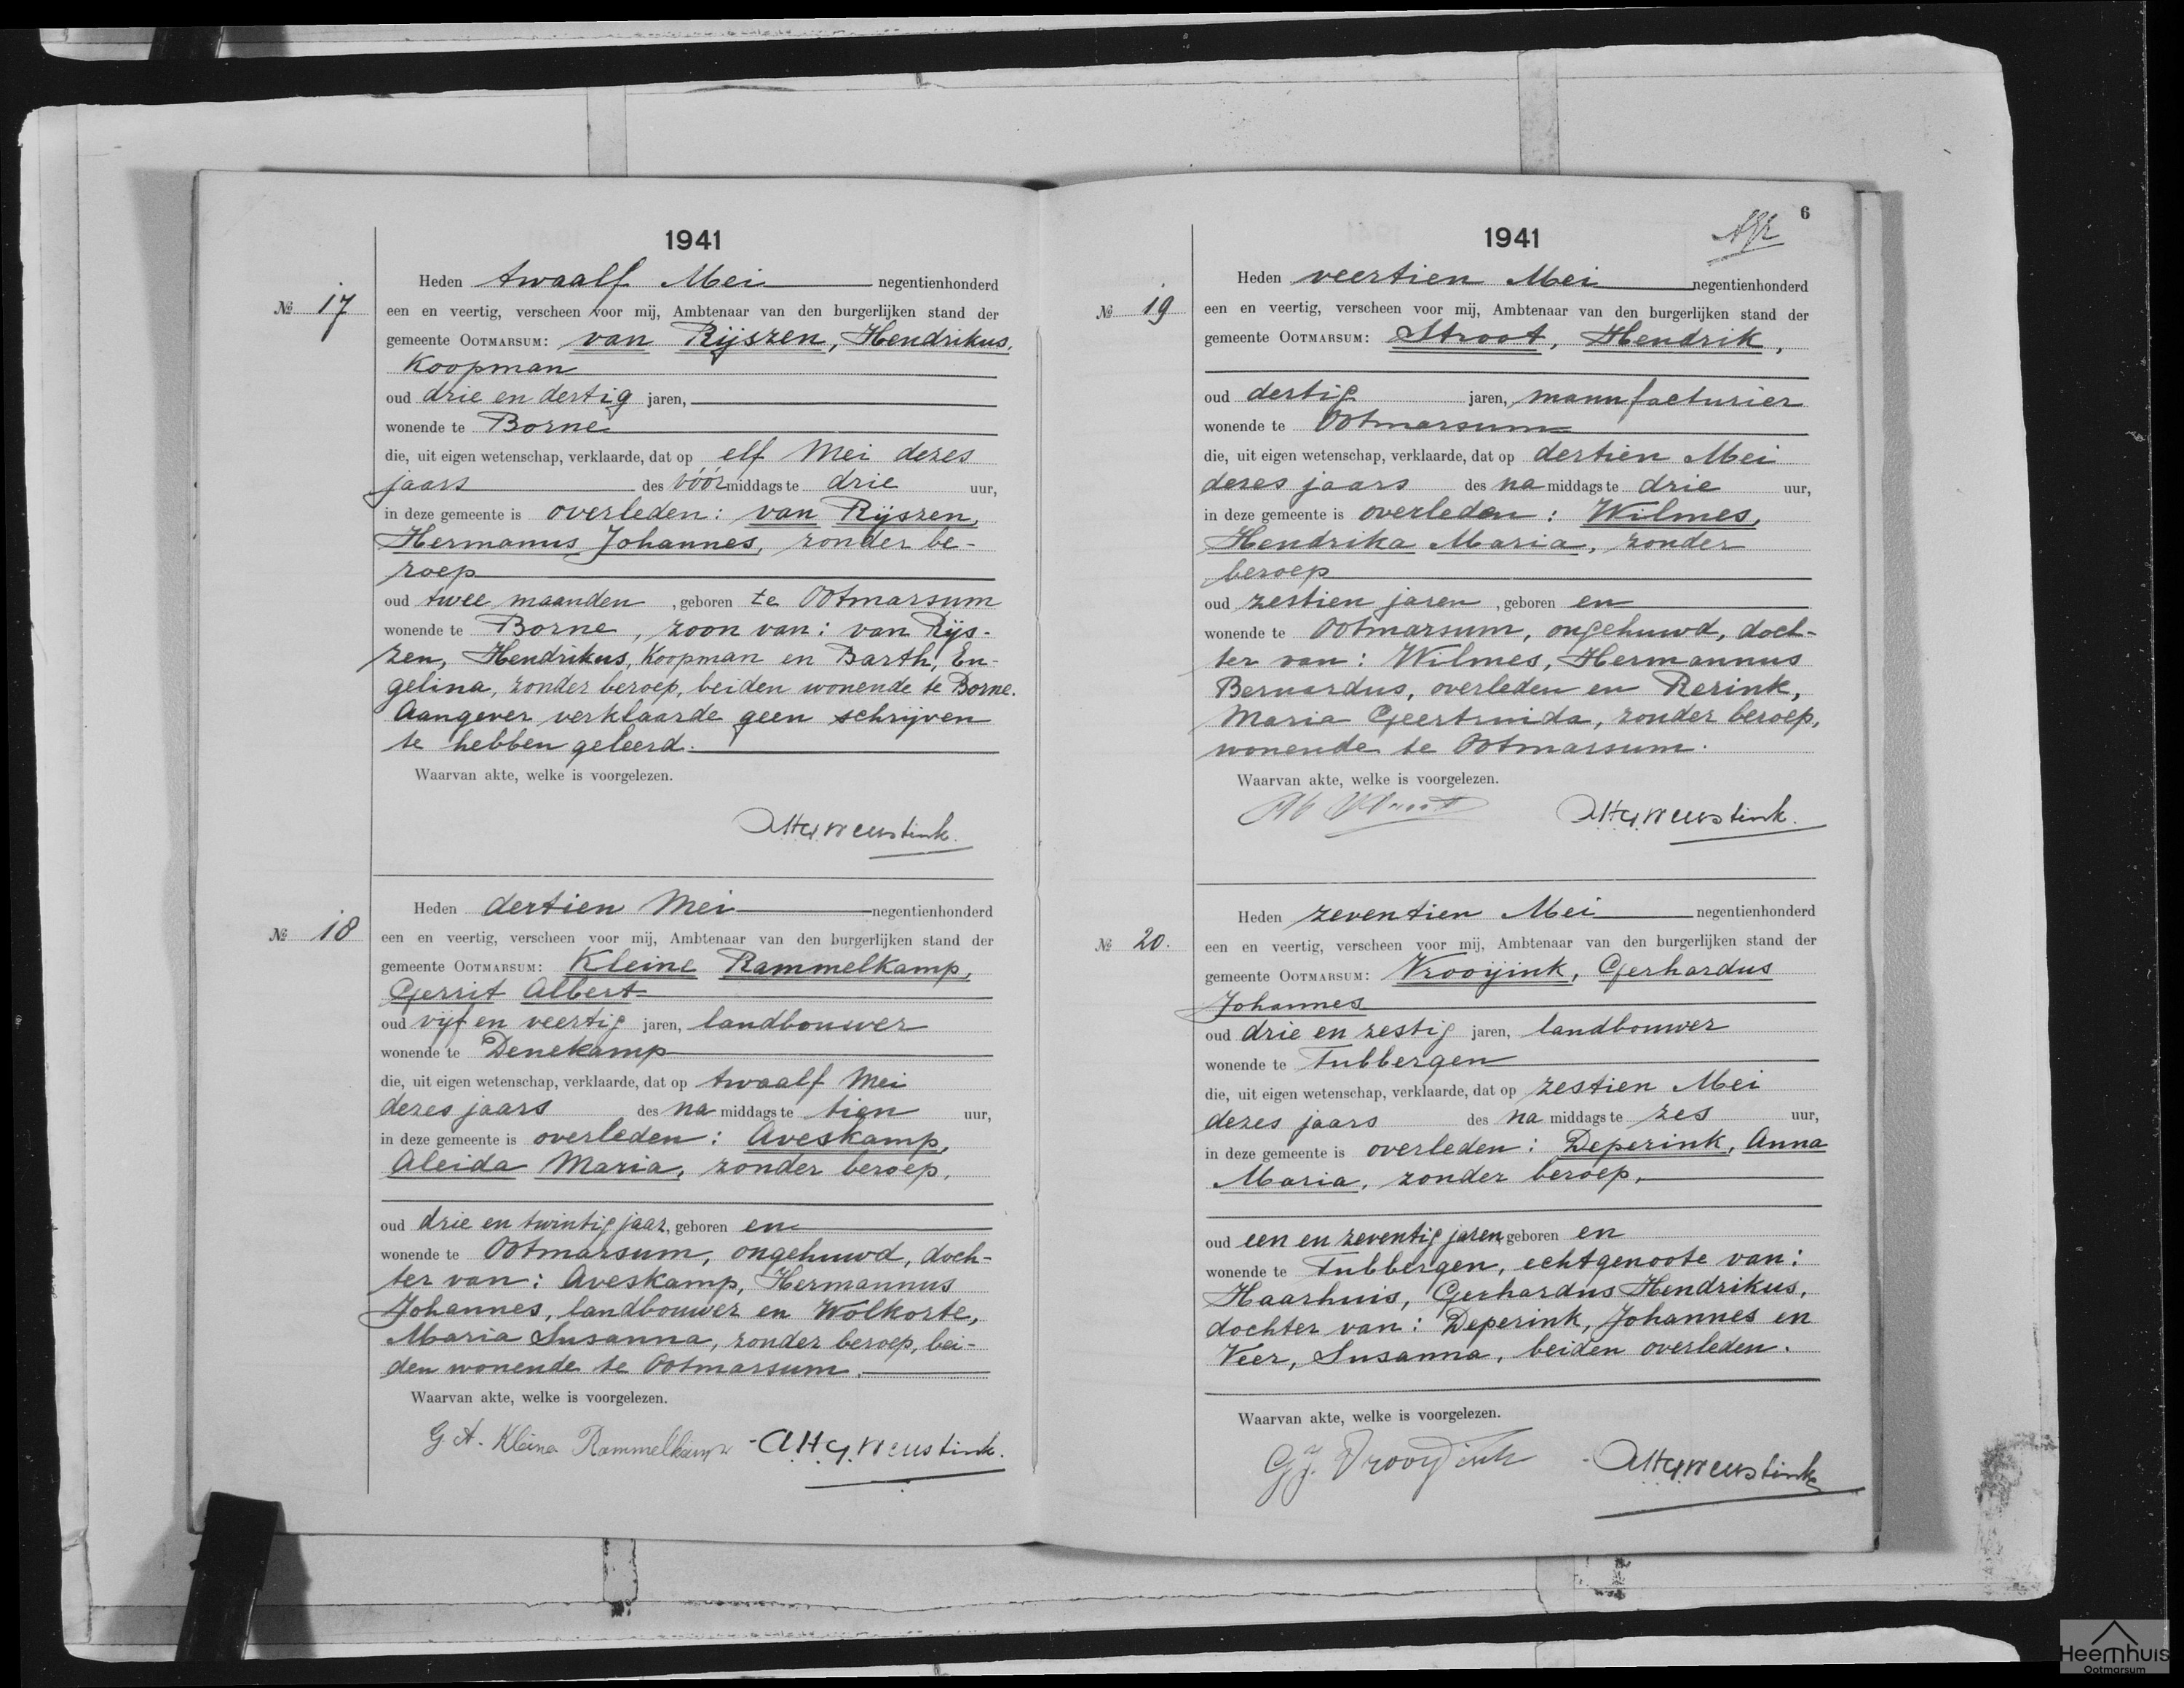 1941
Heden twaalf Mei negentienhonderd
№ 17
een en veertig, verscheen voor mij, Ambtenaar van den burgerlijken stand der
gemeente OOTMARSUM: van Rijszen, Hendrikus,
Koopman
oud drie en dertig jaren,
wonende te Borne
die, uit eigen wetenschap, verklaarde, dat op elf Mei dezes
jaars des vóórmiddags te drie uur,
in deze gemeente is overleden: van Rijszen,
Hermanus Johannes, zonder be-
roep
oud twee maanden, geboren te Ootmarsum
wonende te Borne, zoon van: van Rijs-
zen, Hendrikus, Koopman en Barth, En-
gelina, zonder beroep, beiden wonende te Borne.
Aangever verklaarde geen schrijven
te hebben geleerd.
Waarvan akte, welke is voorgelezen.
Heden dertien Mei negentienhonderd
№ 18
een en veertig, verscheen voor mij, Ambtenaar van den burgerlijken stand der
gemeente OOTMARSUM: Kleine Rammelkamp,
Gerrit Albert
oud vijf en veertig jaren, landbouwer
wonende te Denekamp
die, uit eigen wetenschap, verklaarde, dat op twaalf Mei
dezes jaars des na middags te tien uur,
in deze gemeente is overleden: Aveskamp,
Aleida Maria, zonder beroep,
oud drie en twintig jaar, geboren en
wonende te Ootmarsum, ongehuwd, doch-
ter van: Aveskamp, Hermannus
Johannes, landbouwer en Wolkorte,
Maria Susanna, zonder beroep, bei-
den wonende te Ootmarsum.
Waarvan akte, welke is voorgelezen.
G. A. Kleine Rammelkamp
6
1941
Heden veertien Mei negentienhonderd
№ 19
een en veertig, verscheen voor mij, Ambtenaar van den burgerlijken stand der
gemeente OOTMARSUM: Stroot, Hendrik,
oud dertig jaren, manufacturier
wonende te Ootmarsum
die, uit eigen wetenschap, verklaarde, dat op dertien Mei
dezes jaars des na middags te drie uur,
in deze gemeente is overleden: Wilmes,
Hendrika Maria, zonder
beroep
oud zestien jaren, geboren en
wonende te Ootmarsum, ongehuwd, doch-
ter van: Wilmes, Hermannus
Bernardus, overleden en Rerink,
Maria Geertruida, zonder beroep,
wonende te Ootmarsum.
Waarvan akte, welke is voorgelezen.
Heden zeventien Mei negentienhonderd
№ 20.
een en veertig, verscheen voor mij, Ambtenaar van den burgerlijken stand der
gemeente OOTMARSUM: Vrooijink, Gerhardus
Johannes
oud drie en zestig jaren, landbouwer
wonende te Tubbergen
die, uit eigen wetenschap, verklaarde, dat op zestien Mei
dezes jaars des na middags te zes uur,
in deze gemeente is overleden: Deperink, Anna
Maria, zonder beroep,
oud een en zeventig jaren, geboren en
wonende te Tubbergen, echtgenoote van:
Haarhuis, Gerhardus Hendrikus,
dochter van: Deperink, Johannes en
Veer, Susanna, beiden overleden.
Waarvan akte, welke is voorgelezen.
G J. Vrooijink
Heemhuis
Ootmarsum